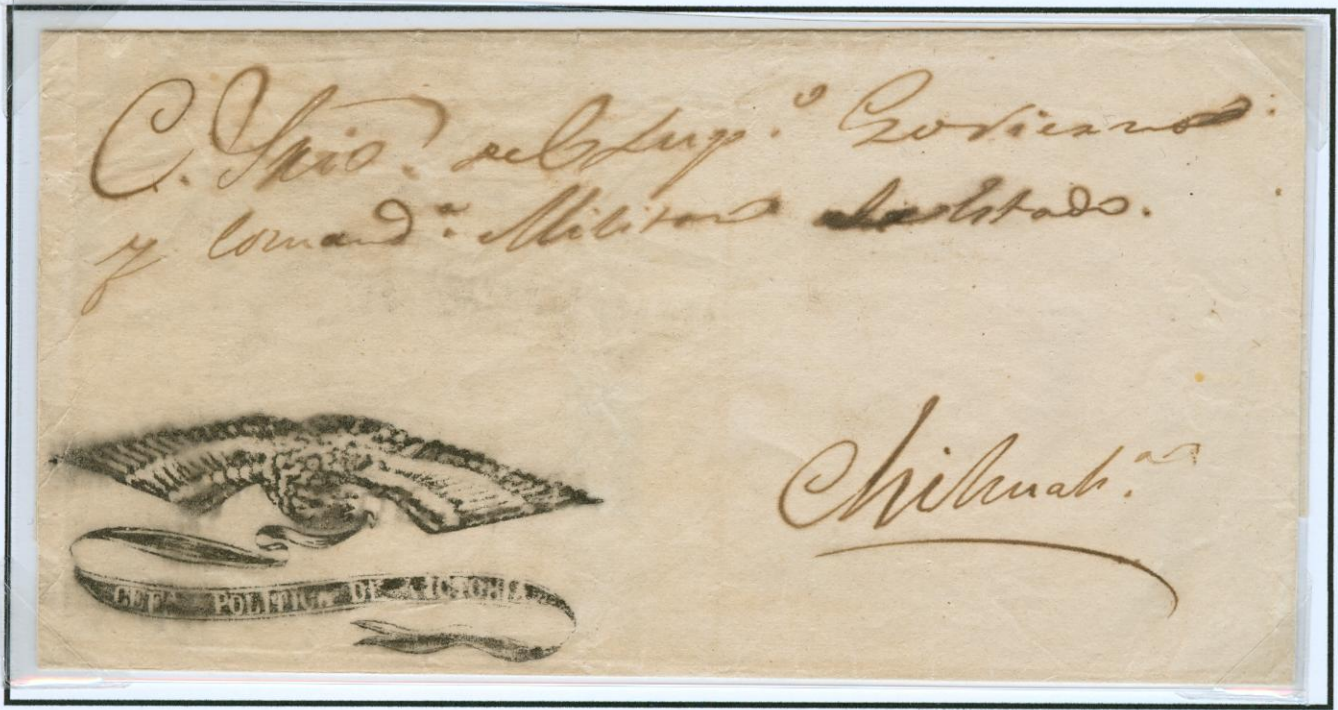 C. Srio. del Sup.º Govierno
y Comand.ª Militar del Estado.
Chihuah.ª
GEF.ª POLITICA DE VICTORIA